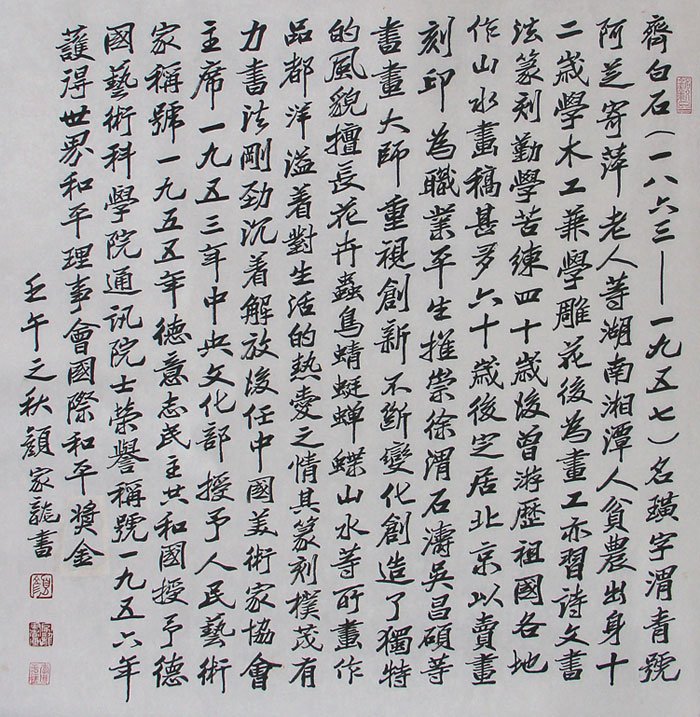 齊白石(一八六三——一九五七)名璜字渭青號
阿芝寄萍老人等湖南湘潭人貧農出身十
二歲學木工兼學雕花後為畫工亦習詩文書
法篆刻勤學苦練四十歲後曾游歷祖國各地
作山水畫稿甚多六十歲後定居北京以賣畫
刻印為職業平生推崇徐渭石濤吳昌碩等
書畫大師重視創新不斷變化創造了獨特
的風貌擅長花卉蟲鳥蜻蜓蟬蝶山水等所畫作
品都洋溢着對生活的熱愛之情其篆刻樸茂有
力書法剛勁沉着解放後任中國美術家協會
主席一九五三年中央文化部授予人民藝術
家稱號一九五五年德意志民主共和國授予德
國藝術科學院通訊院士榮譽稱號一九五六年
護得世界和平理事會國際和平獎金
壬午之秋顏家龍書